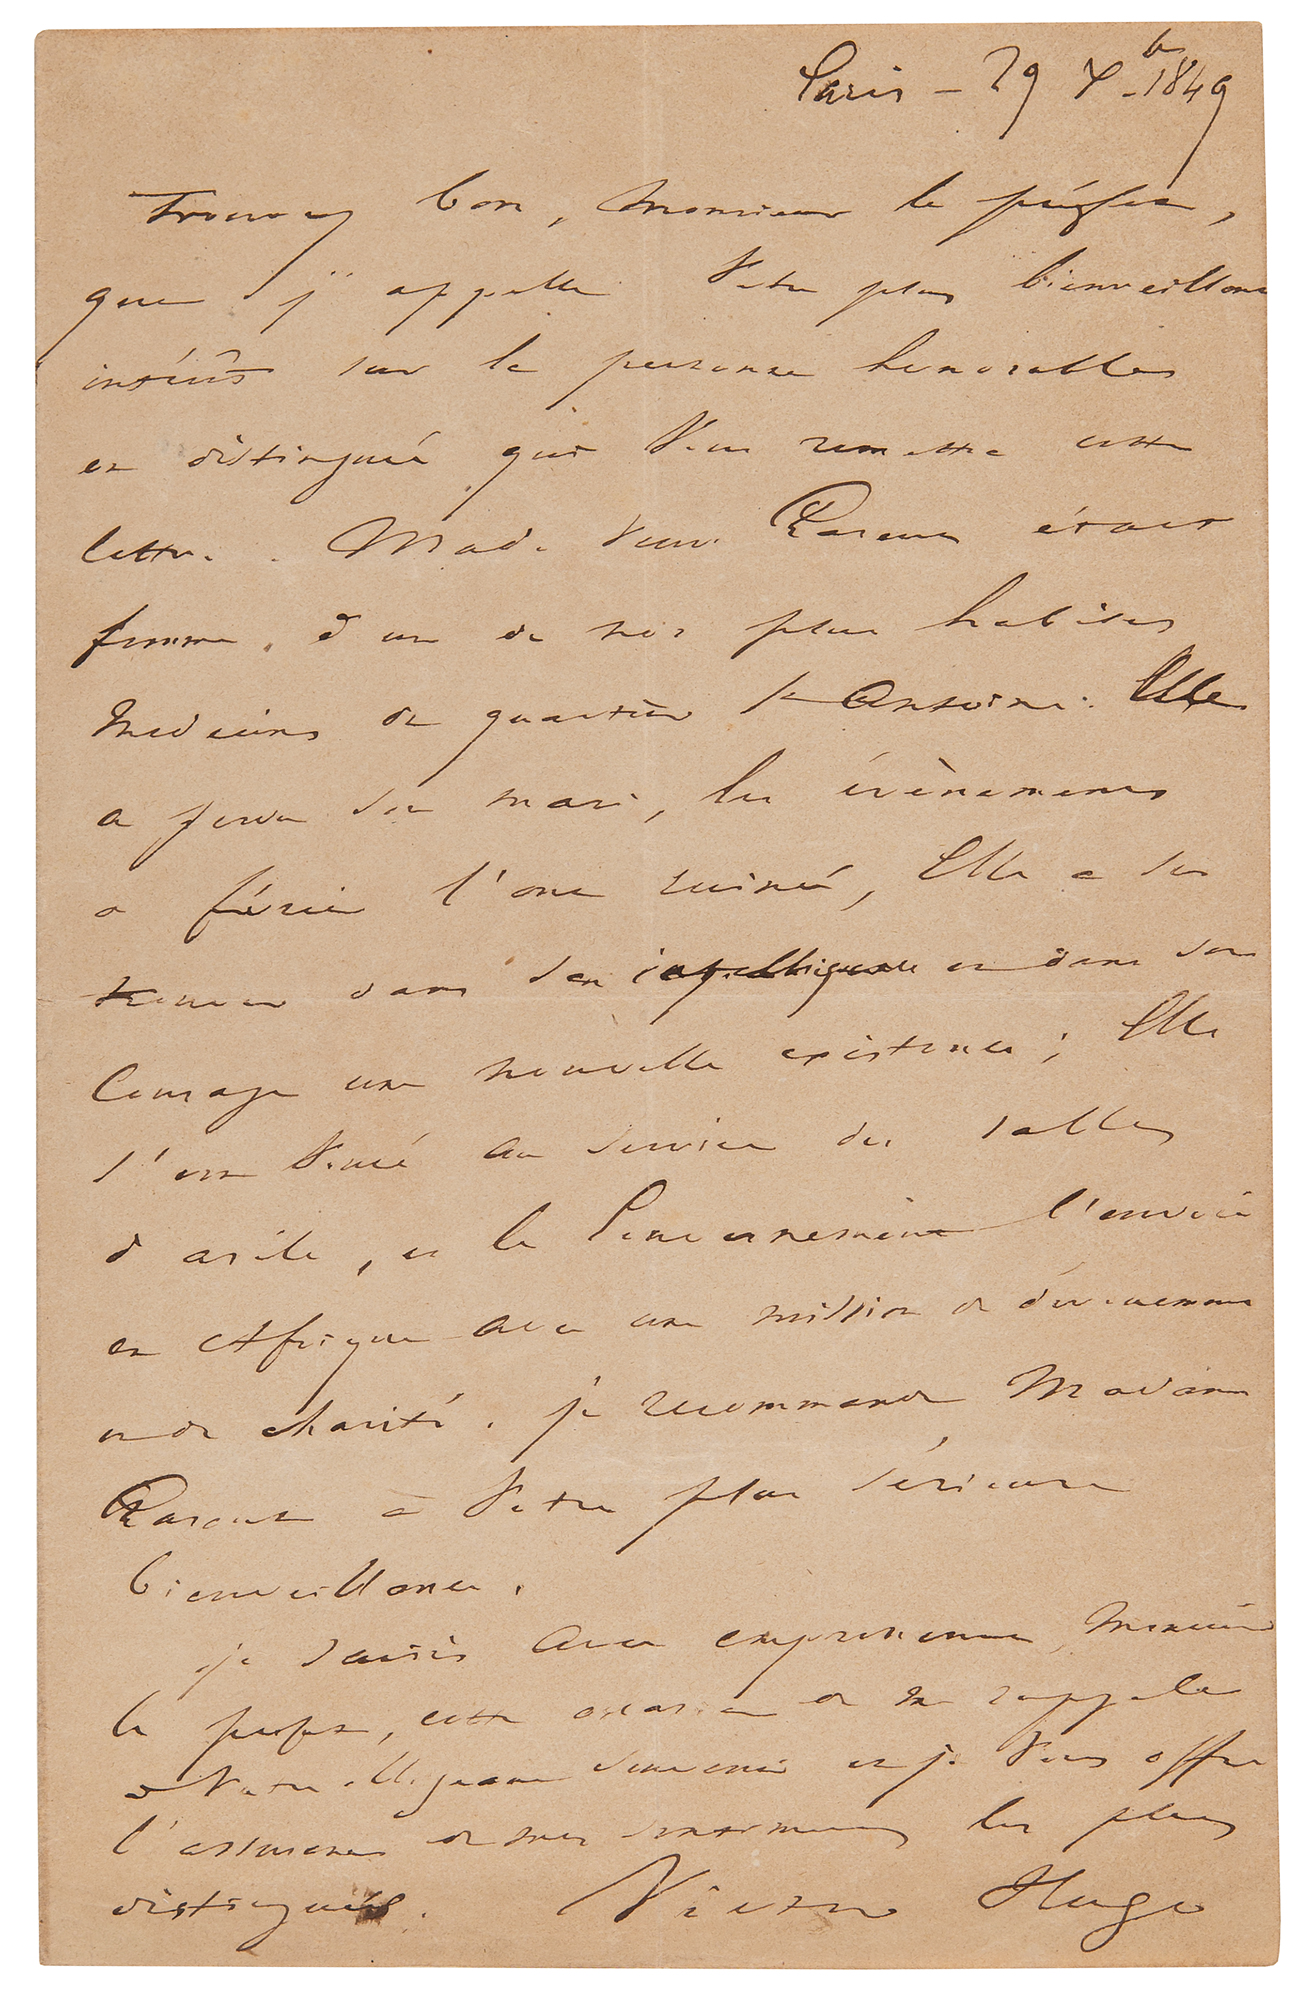 Paris - 29 7bre 1849
Trouvez bon, Monsieur le préfet,
que j'appelle votre plus bienveillant
intérêt sur la personne honorable
et distinguée qui vous remettra cette
lettre. Made veuve était
femme d'un de nos plus habiles
médecins du quartier St Antoine. Elle
a perdu son mari, les évènements
de février l'ont ruinée, Elle a su
trouver dans son intelligence et dans son
courage une nouvelle existence ; Elle
s'est vouée au service des salles
d'asile, et le Gouvernement l'envoie
en Afrique avec une mission de dévouement
et de charité. je recommande Madame
à votre plus sérieuse
bienveillance.
je saisis avec empressement, Monsieur
le préfet, cette occasion de me rappeler
à votre souvenir et je vous offre
l'assurance de mes sentiments les plus
distingués. Victor Hugo